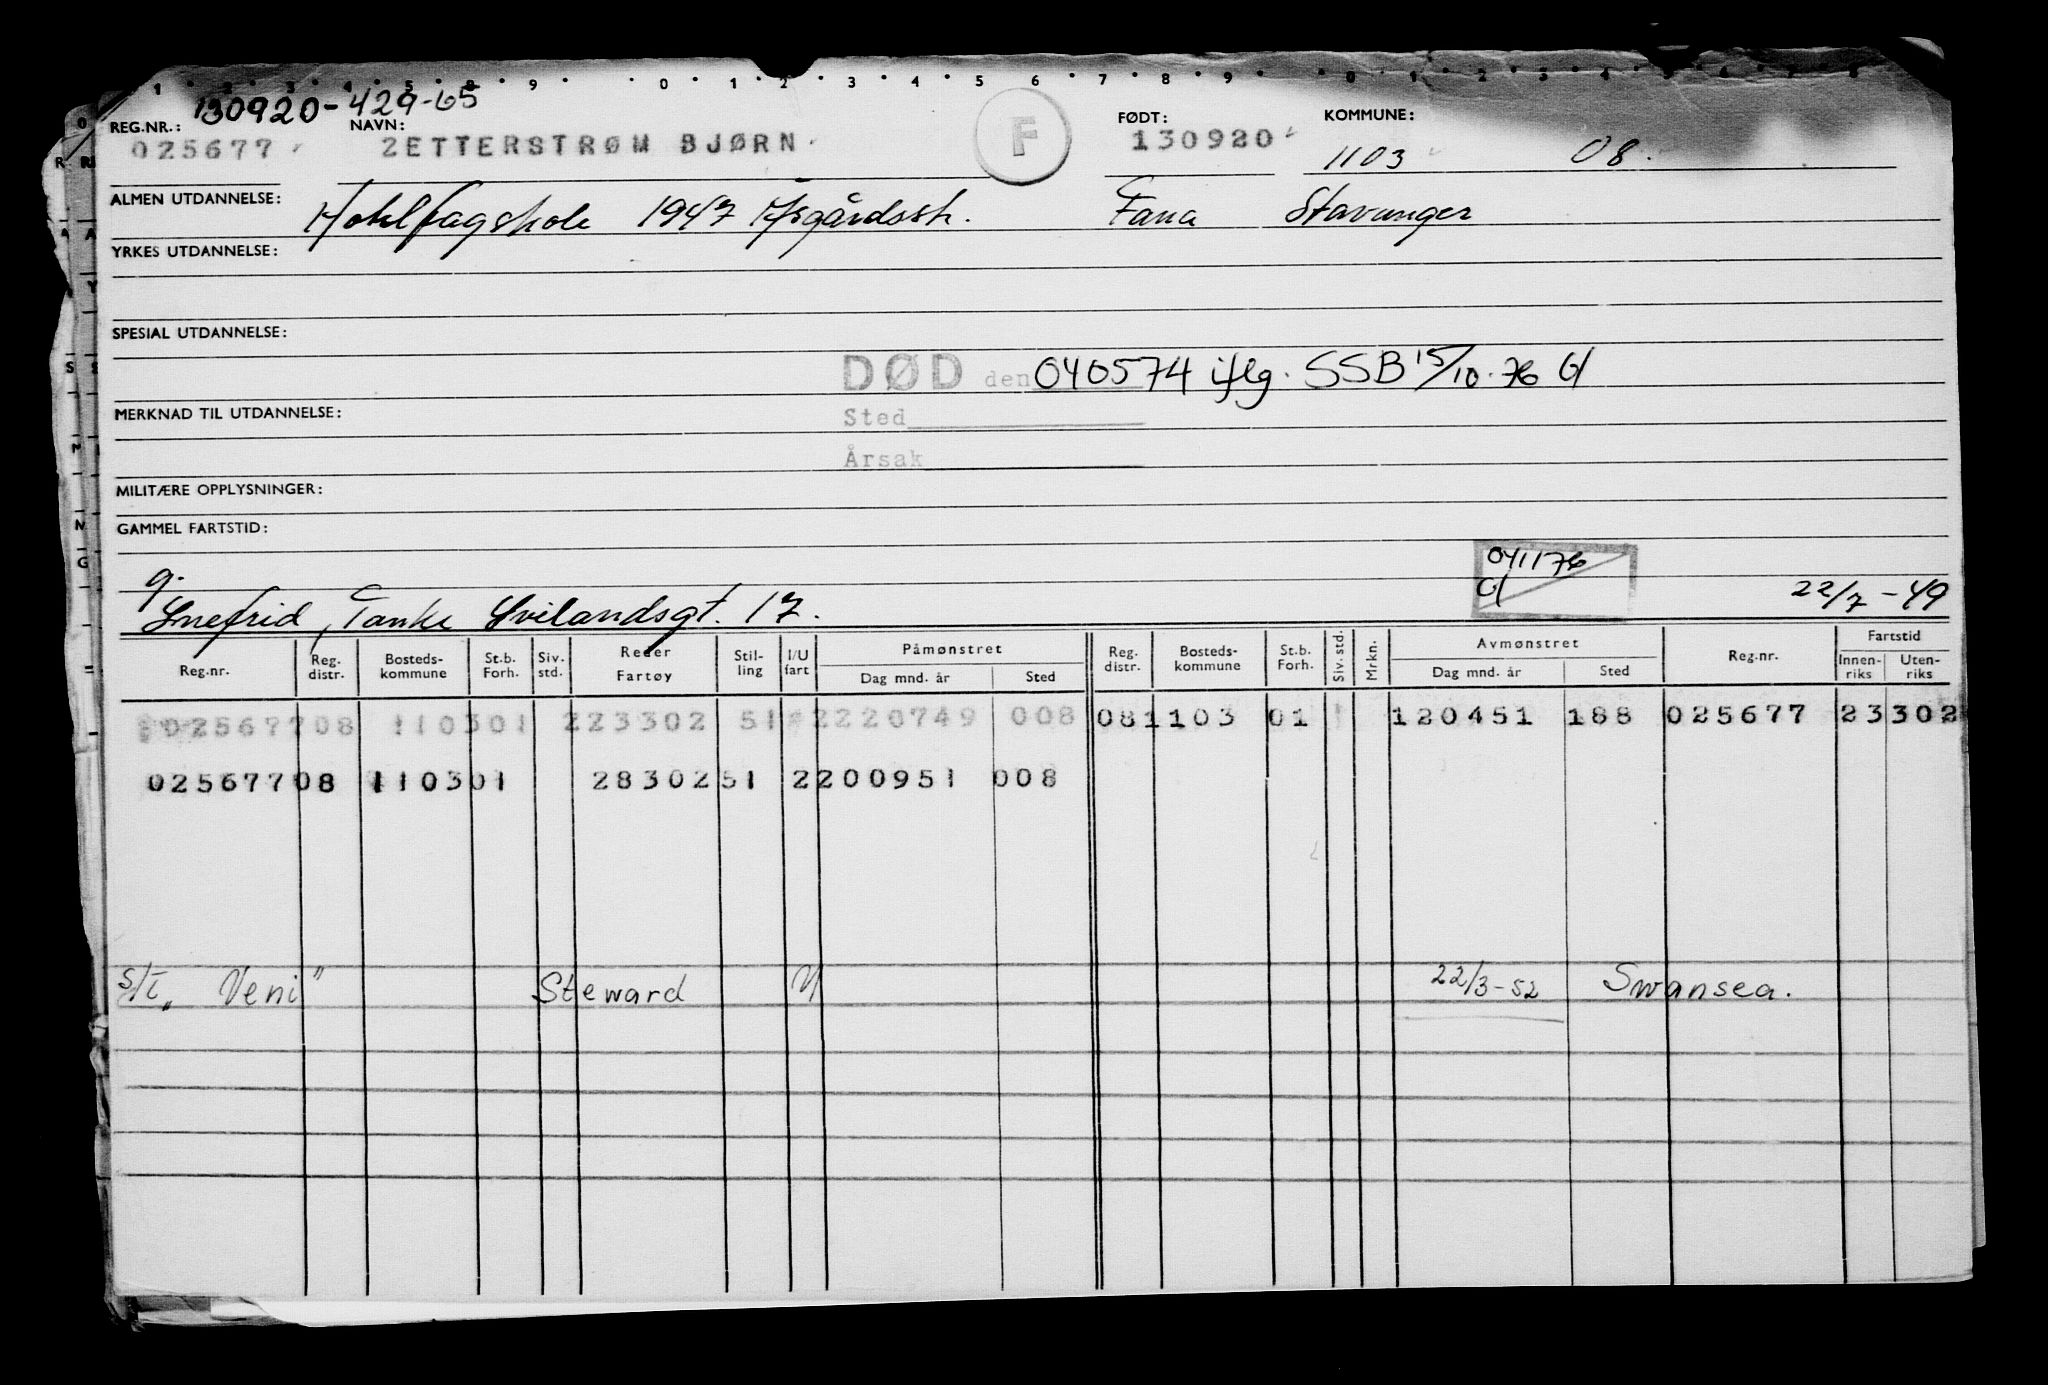 1 2 3 4 5 6 7 8 9 0 1 2 3 4 5 6 7 8 9 0 1 2 3 4 5 6 7 8
130920-429-65
REG.NR.: NAVN: FØDT: KOMMUNE:
025677 ZETTERSTRØM BJØRN F 130920 1103 08.
ALMEN UTDANNELSE: Hotellfagskole 1947 Fana Stavanger
YRKES UTDANNELSE:
SPESIAL UTDANNELSE:
DØD den 040574 iflg. SSB 15/10.76 G/
MERKNAD TIL UTDANNELSE:
Sted
Årsak
MILITÆRE OPPLYSNINGER:
GAMMEL FARTSTID:
041176
G/
g.
Snefrid, Tanke Svilandsgt. 17. 22/7-49
Reg.nr. Reg. distr. Bosteds-kommune St.b. Forh. Siv. std. Reder Fartøy Stil-ling I/U fart Påmønstret Dag mnd. år Sted Reg. distr. Bosteds-kommune St.b. Forh. Siv. std. Mrkn. Avmønstret Dag mnd. år Sted Reg.nr. Fartstid Innen-riks Uten-riks
025677 08 1103 01 223302 51 2 220749 008 08 1103 01 120451 188 025677 23302
025677 08 1103 01 28302 51 2 200951 008
S/T "Veni" Steward U 22/3-52 Swansea.